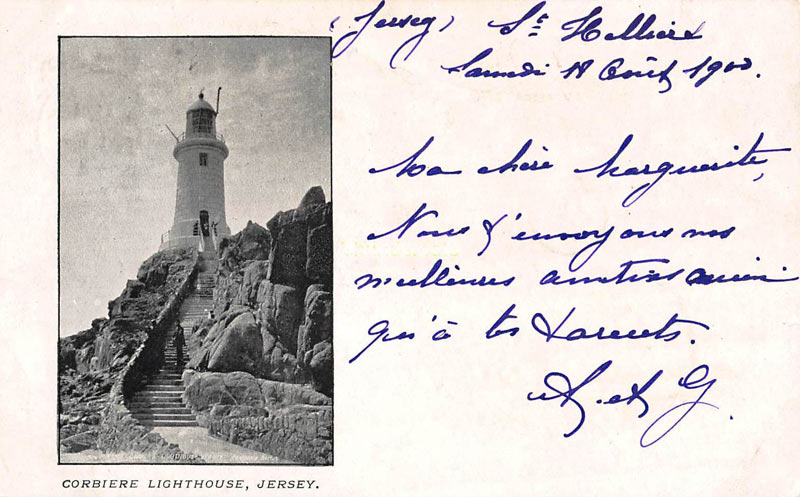 (Jersey) St Hellier
Samedi 18 Août 1900.
Ma chère Marguerite,
Nous t'envoyons nos
meilleures amitiés ainsi
qu'à tes parents.
et G.
CORBIERE LIGHTHOUSE, JERSEY.